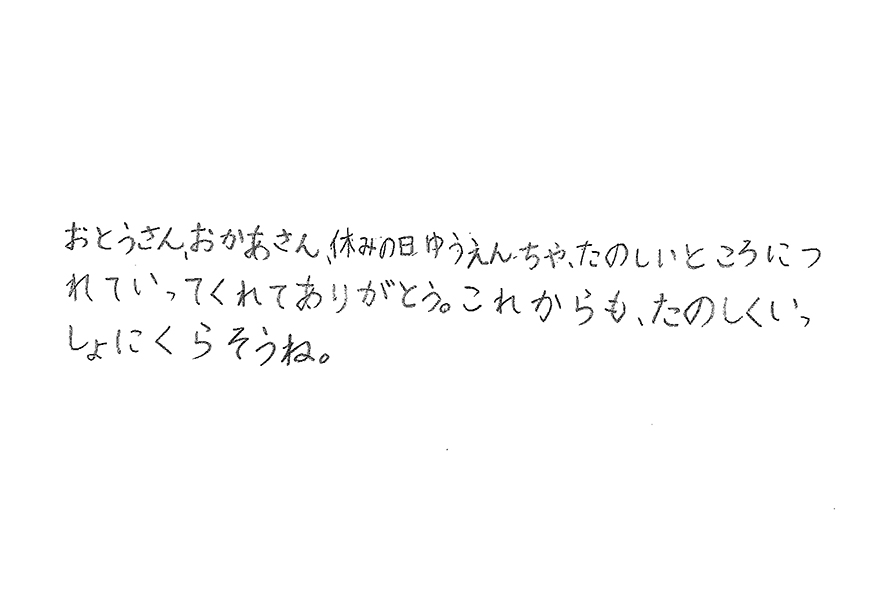 おとうさん、おかあさん、休みの日ゆうえんちや、たのしいところにつ
れていってくれてありがとう。これからも、たのしくいっ
しょにくらそうね。